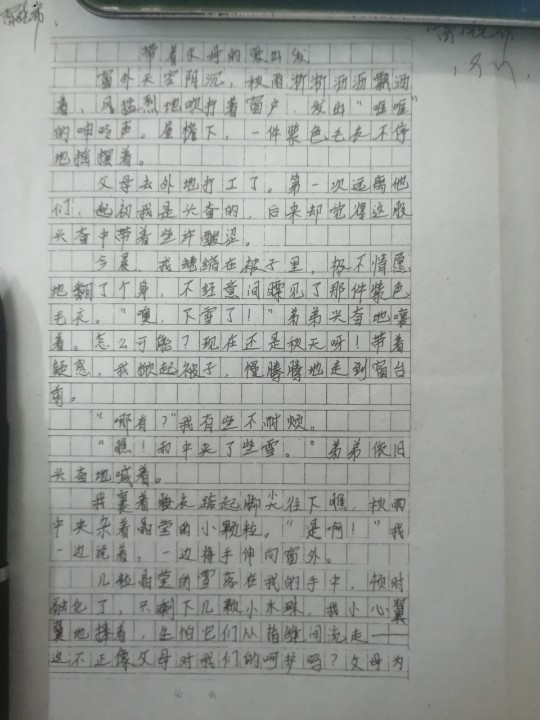 带着父母的爱出发
窗外天空阴沉，秋雨淅淅沥沥飘洒
着，风猛烈地吹打着窗户，发出“哐哐”
的呻吟声。屋檐下，一件紫色毛衣不停
地摇摆着。
父母去外地打工了。第一次远离他
们，起初我是兴奋的，后来却觉得这股
兴奋中带着些许酸涩。
今晨，我蜷缩在被子里，极不情愿
地翻了个身，不经意间瞟见了那件紫色
毛衣。“噢，下雪了！”弟弟兴奋地嚷
着。怎么可能？现在还是秋天呀！带着
疑惑，我掀起被子，慢腾腾地走到窗台
前。
“哪有？”我有些不耐烦。
“瞧！雨中夹了些雪。”弟弟依旧
兴奋地喊着。
我裹着睡衣踮起脚尖往下瞧，秋雨
中夹杂着晶莹的小颗粒。“是啊！”我
一边说着，一边将手伸向窗外。
几粒晶莹的雪落在我的手中，顿时
融化了，只剩下几颗小水珠，我小心翼
翼地捧着，生怕它们从指缝间流走——
这不正像父母对我们的呵护吗？父母为